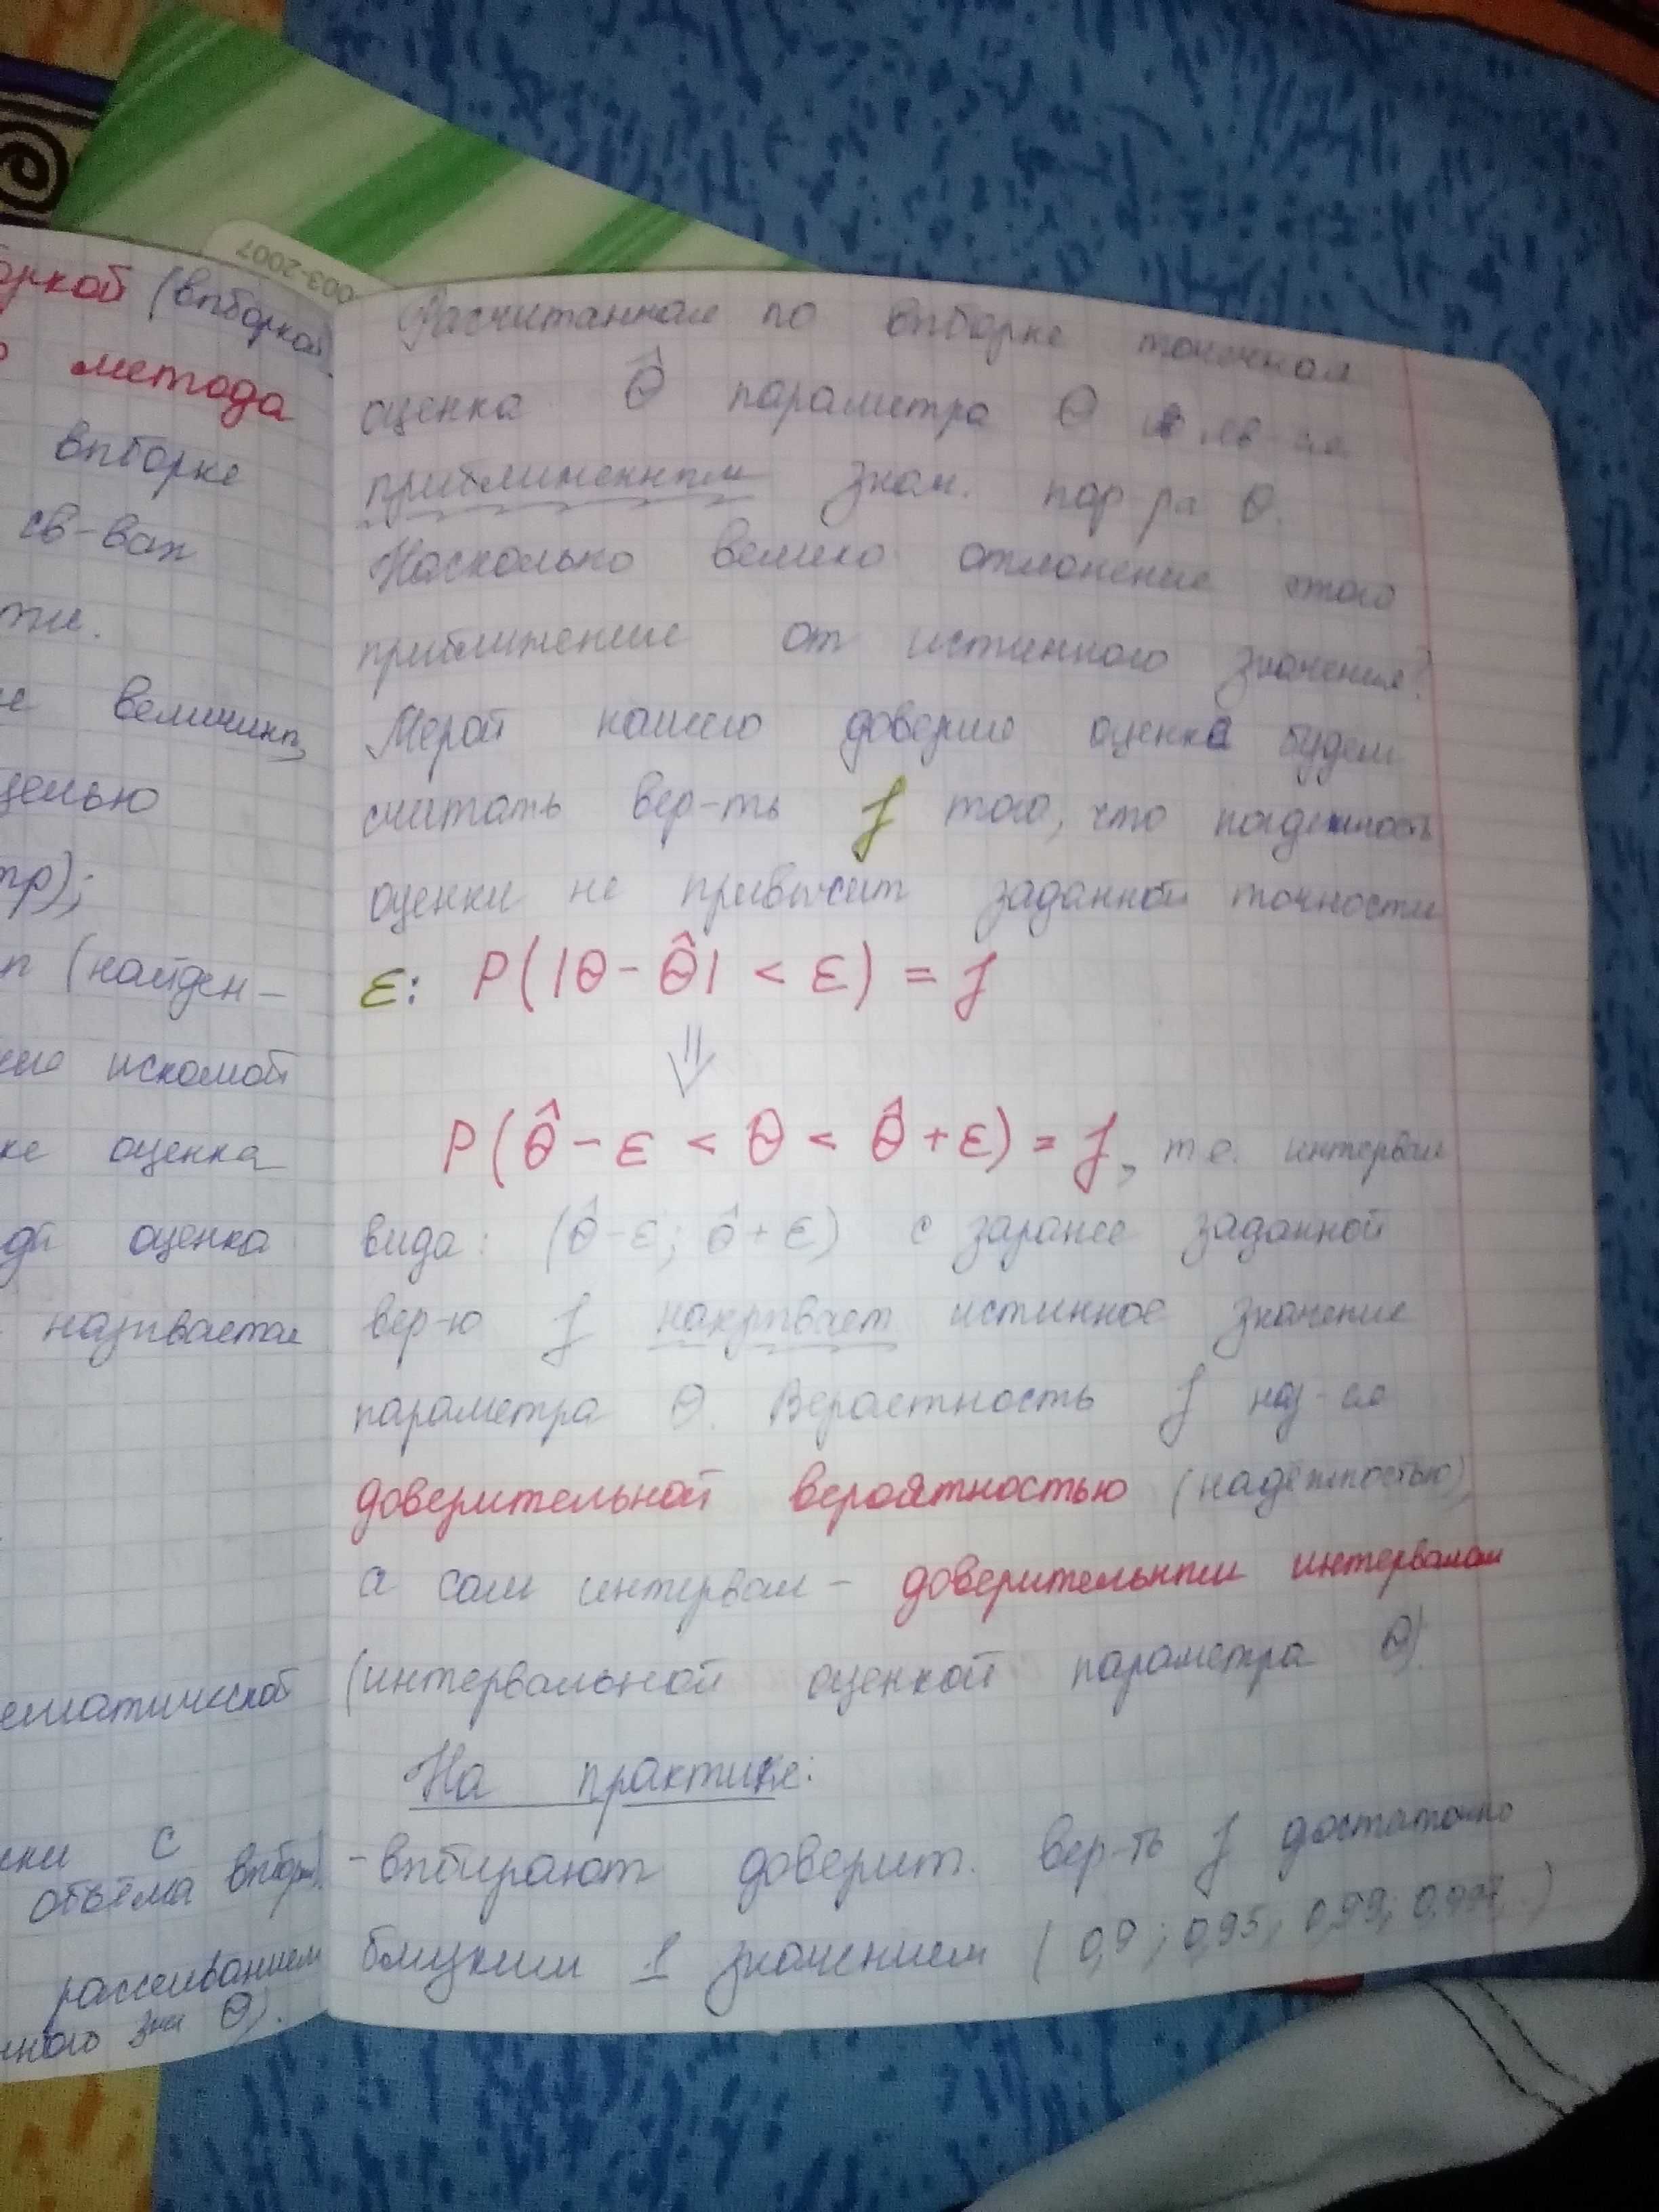 003-2007
оркой (выборкой)
метода
выборке
св-вах
сти.
е величины,
целью
тр);
п (найден-
искомой
ке оценка
оценка
называется
ематической
с
объёма выборки).
рассеиванием
нного зн-я Θ).
Расчитанная по выборке точечная
оценка Θ̂ параметра Θ яв-ся
приближенным знач. пар-ра Θ.
Насколько велико отклонение этого
приближение от истинного значения?
Мерой нашего доверие оценке будем
считать вер-ть γ того, что
оценки не привысит заданной точности
ε: P(|Θ - Θ̂| < ε) = γ
⇓
P(Θ̂ - ε < Θ < Θ̂ + ε) = γ, т.е. интервал
вида: (Θ̂ - ε; Θ̂ + ε) с заранее заданной
вер-ю γ накрывает истинное значение
параметра Θ. Вероятность γ наз-ся
доверительной вероятностью (надёжностью),
а сам интервал - доверительным интервалом
(интервальной оценкой параметра Θ).
На практике:
- выбирают доверит. вер-ть γ достаточно
близким 1 значением (0,9; 0,95; 0,99;